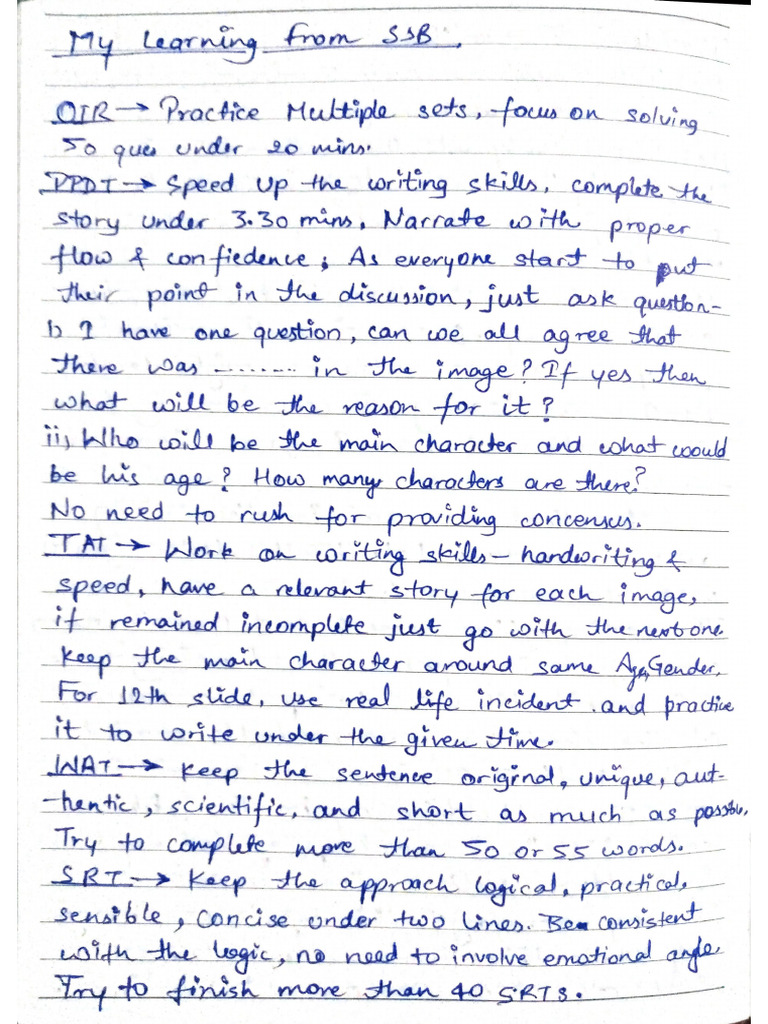 My Learning from SSB.
OIR → Practice Multiple sets, focus on solving
50 ques under 20 mins.
PPDT → Speed up the writing skills, complete the
story under 3.30 mins, Narrate with proper
flow & confiedence; As everyone start to put
their point in the discussion, just ask question-
i) I have one question, can we all agree that
there was ......... in the image? If yes then
what will be the reason for it?
ii, Who will be the main character and what would
be his age? How many characters are there?
No need to rush for providing concensus.
TAT → Work on writing skills - handwriting &
speed, have a relevant story for each image,
if remained incomplete just go with the next one.
Keep the main character around same Age, Gender.
For 12th slide, use real life incident and practice
it to write under the given time.
WAT → Keep the sentence original, unique, aut-
-hentic, scientific, and short as much as possible.
Try to complete more than 50 or 55 words.
SRT → Keep the approach logical, practical,
sensible, concise under two lines. Be consistent
with the logic, no need to involve emotional angle.
Try to finish more than 40 SRTS.